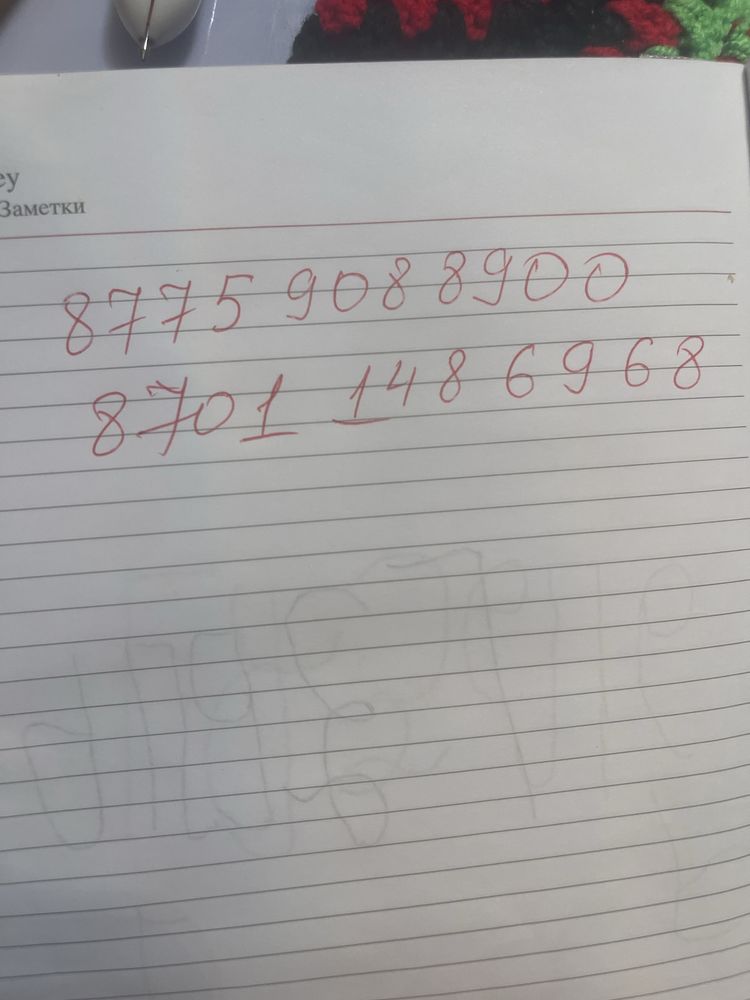 ey
Заметки
8775 9088900
8701 1486968